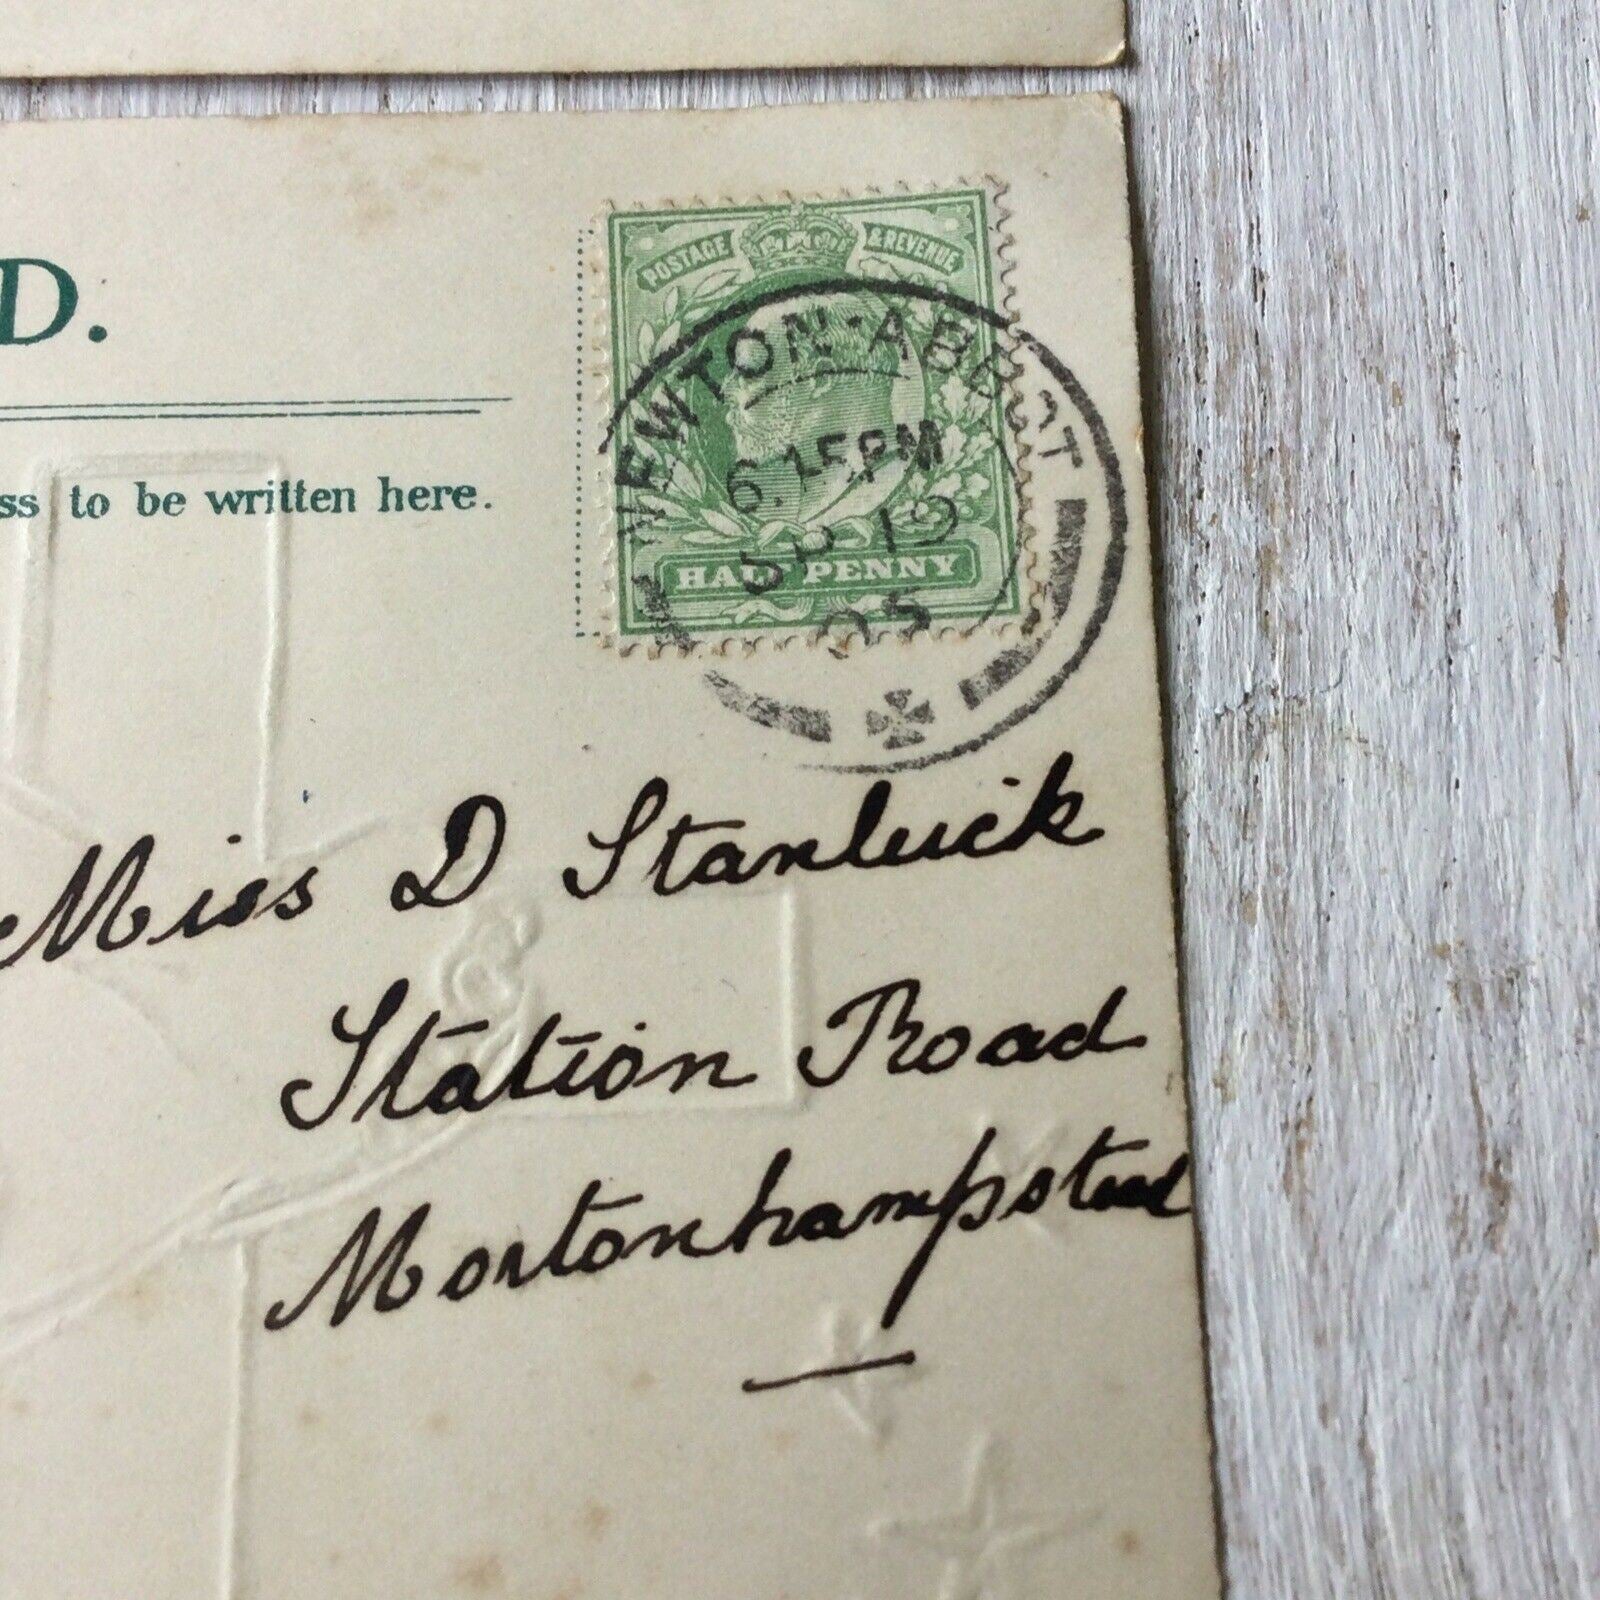 D.
ss to be written here.
POSTAGE & REVENUE
NEWTON·ABBOT
6.15PM
SP 19
05
HALF PENNY
Miss D Stanluick
Station Road
Mortonhampstead